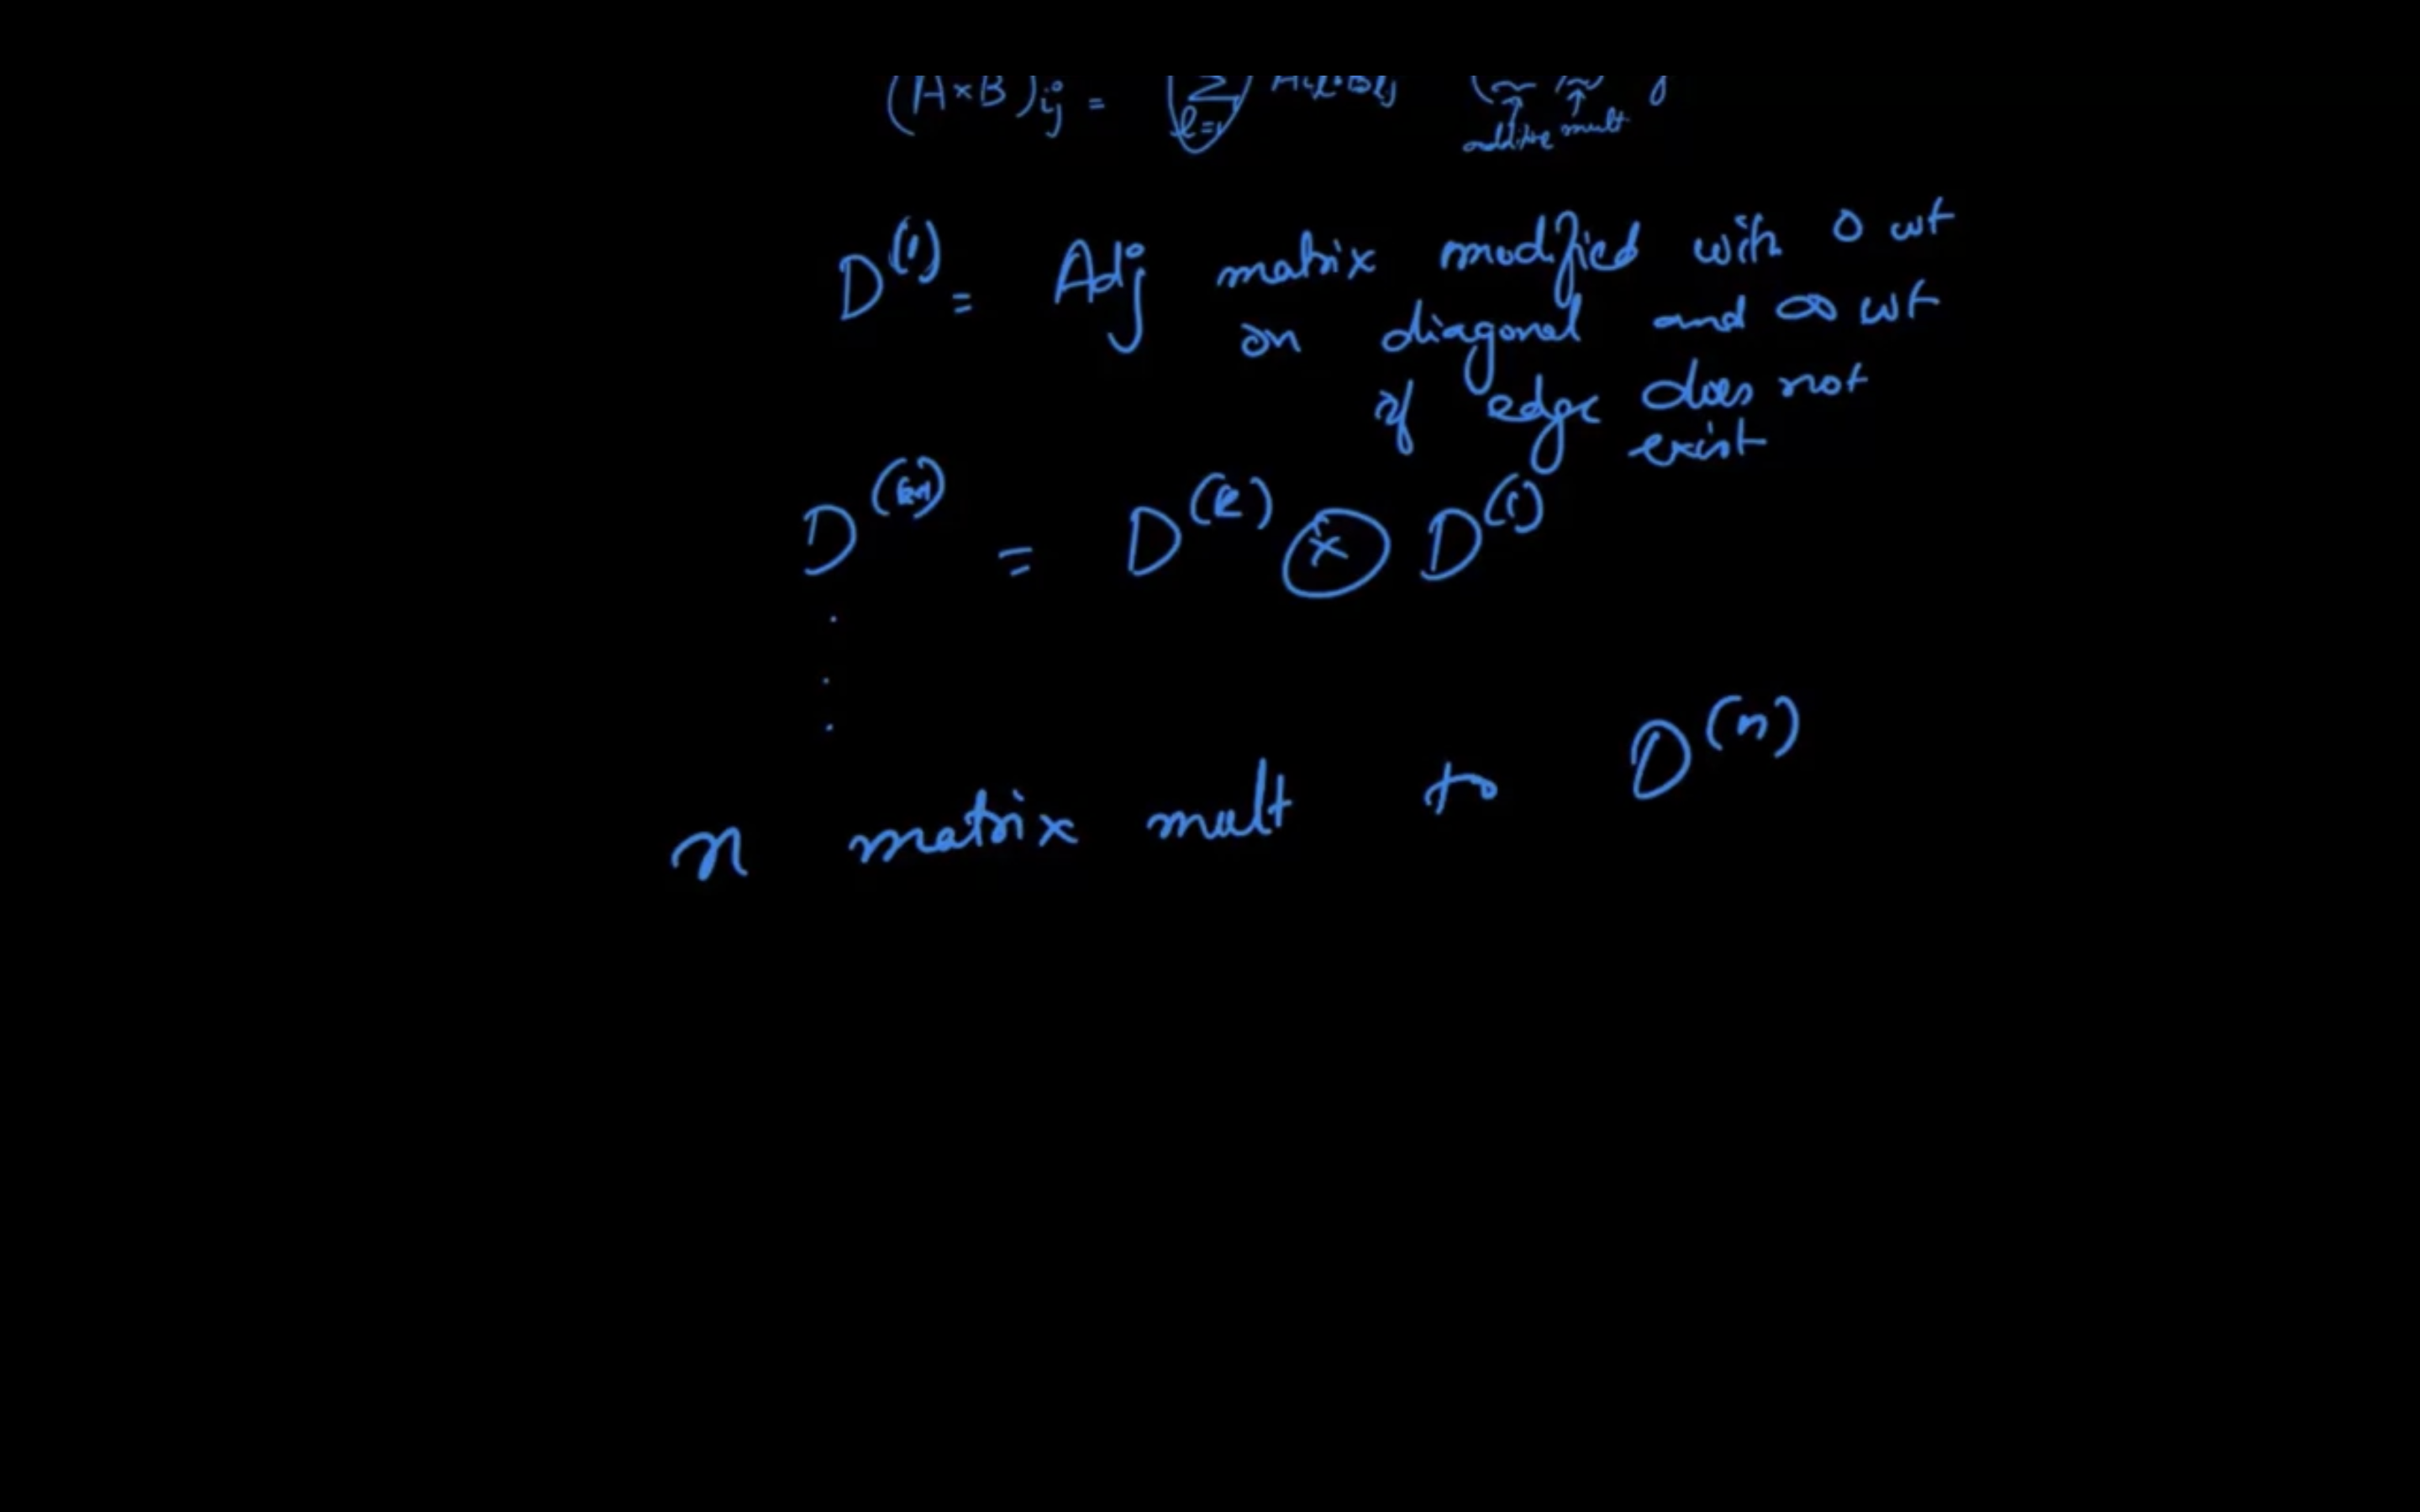 (A×B)ij = Σ l=1 Ail·Blj
additive mult
D^(1) = Adj matrix modified with 0 wt
on diagonal and ∞ wt
if edge does not
exist
D^(k+1) = D^(k) ⊗ D^(1)
n matrix mult to D^(n)